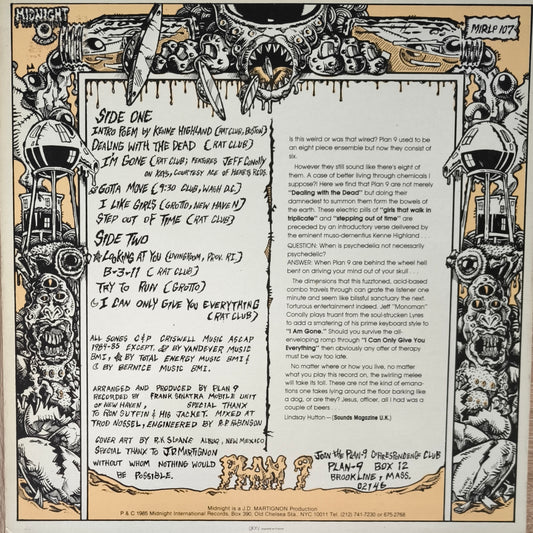 MIDNIGHT
MIRLP 107
SIDE ONE
INTRO POEM BY KENNE HIGHLAND (RAT CLUB, BOSTON)
DEALING WITH THE DEAD (RAT CLUB)
I'M GONE (RAT CLUB; FEATURES JEFF CONOLLY
ON KEYS, COURTESY ACE OF HEARTS RCDS.
GOTTA MOVE (9:30 CLUB, WASH D.C.)
I LIKE GIRLS (GROTTO, NEW HAVEN)
STEP OUT OF TIME (RAT CLUB)
SIDE TWO
LOOKING AT YOU (LIVINGROOM, PROV. RI.)
B-3-11 (RAT CLUB)
TRY TO RUN (GROTTO)
I CAN ONLY GIVE YOU EVERYTHING
(RAT CLUB)
ALL SONGS C&P CRISWELL MUSIC ASCAP
1984-85 EXCEPT, BY VANDEVER MUSIC
BMI, BY TOTAL ENERGY MUSIC BMI &
BY BERNICE MUSIC BMI.
ARRANGED AND PRODUCED BY PLAN 9
RECORDED BY FRANK SINATRA MOBILE UNIT
OF NEW HAVEN, SPECIAL THANX
TO RON SUTEIN & HIS JACKET. MIXED AT
TROD NOSSEL, ENGINEERED BY R.P. ROBINSON
COVER ART BY R.K. SLOANE ALBUQ, NEW MEXICO
SPECIAL THANX TO J.D. MARTIGNON
WITHOUT WHOM NOTHING WOULD
BE POSSIBLE.
Is this weird or was that wired? Plan 9 used to be
an eight piece ensemble but now they consist of
six.
However they still sound like there's eight of
them. A case of better living through chemicals I
suppose?! Here we find that Plan 9 are not merely
"Dealing with the Dead" but doing their
damnedest to summon them form the bowels of
the earth. These electric pills of "girls that walk in
triplicate" and "stepping out of time" are
preceded by an introductory verse delivered by
the eminent muso-dementius Kenne Highland . . .
QUESTION: When is psychedelia not necessarily
psychedelic?
ANSWER: When Plan 9 are behind the wheel hell
bent on driving your mind out of your skull . . .
The dimensions that this fuzztoned, acid-based
combo travels through can grate the listener one
minute and seem like blissful sanctuary the next.
Torturous entertainment indeed. Jeff "Monoman"
Conolly plays truant from the soul-strucken Lyres
to add a smattering of his prime keyboard style to
"I Am Gone." Should you survive the all-
enveloping romp through "I Can Only Give You
Everything" then obviously any offer of therapy
must be way too late.
No matter where or how you live, no matter
what you play this record on, the swirling melee
will take its toll. These are not the kind of emana-
tions one takes lying around the floor barking like
a dog, or are they? Jesus, officer, all I had was a
couple of beers . . .
Lindsay Hutton — (Sounds Magazine U.K.)
PLAN 9
JOIN the PLAN-9 CORRESPONDENCE CLUB
PLAN-9 BOX 12
BROOKLINE, MASS.
02146
Midnight is a J.D. MARTIGNON Production
P & C 1985 Midnight International Records, Box 390, Old Chelsea Sta. NYC 10011 Tel: (212) 741-7230 or 675-2768